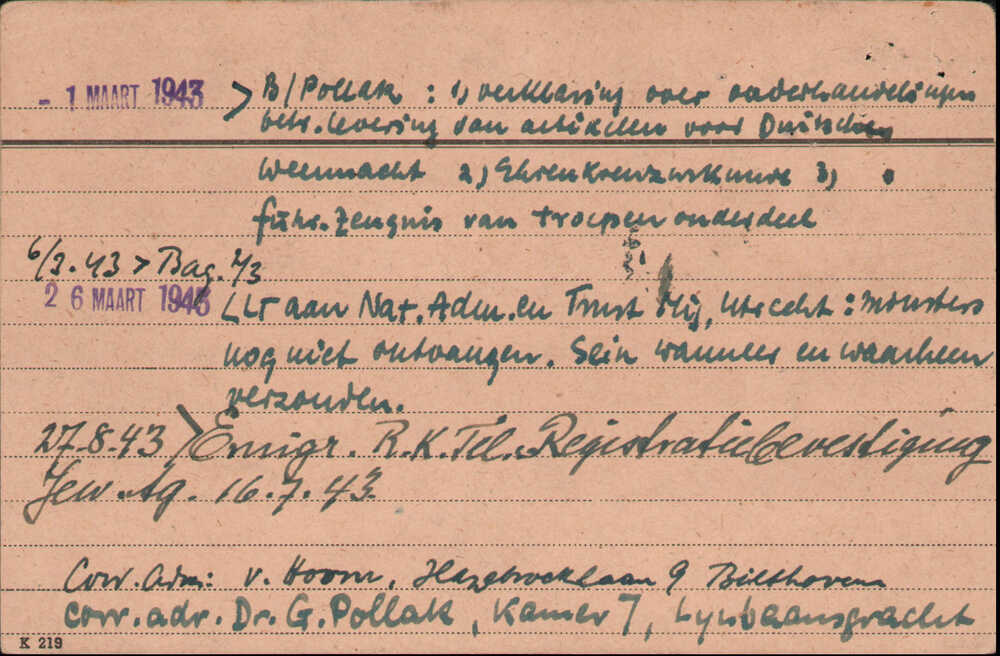 - 1 MAART 1943 > B/Pollak : 1) verklaring over onderhandelingen
betr. levering van artikelen voor Duitschen
weermacht 2) Ehrenkreuzurkunde 3)
führ. Zeugnis van troepenonderdeel
6/3.43 > Bag. 2/3
26 MAART 1943 LT aan Nat. Adm. en Trust Mij, Utrecht : monsters
nog niet ontvangen. Sein wanneer en waarheen
verzonden.
27-8-43 > Emigr. R.K. Tel. Registratiebevestiging
Jew. Ag. 16.7.43
Corr. Adm: v. Hoorn, Hazebroeklaan 9 Bilthoven
corr. adr. Dr. G. Pollak, Kamer 7, Lynbaansgracht
K 219